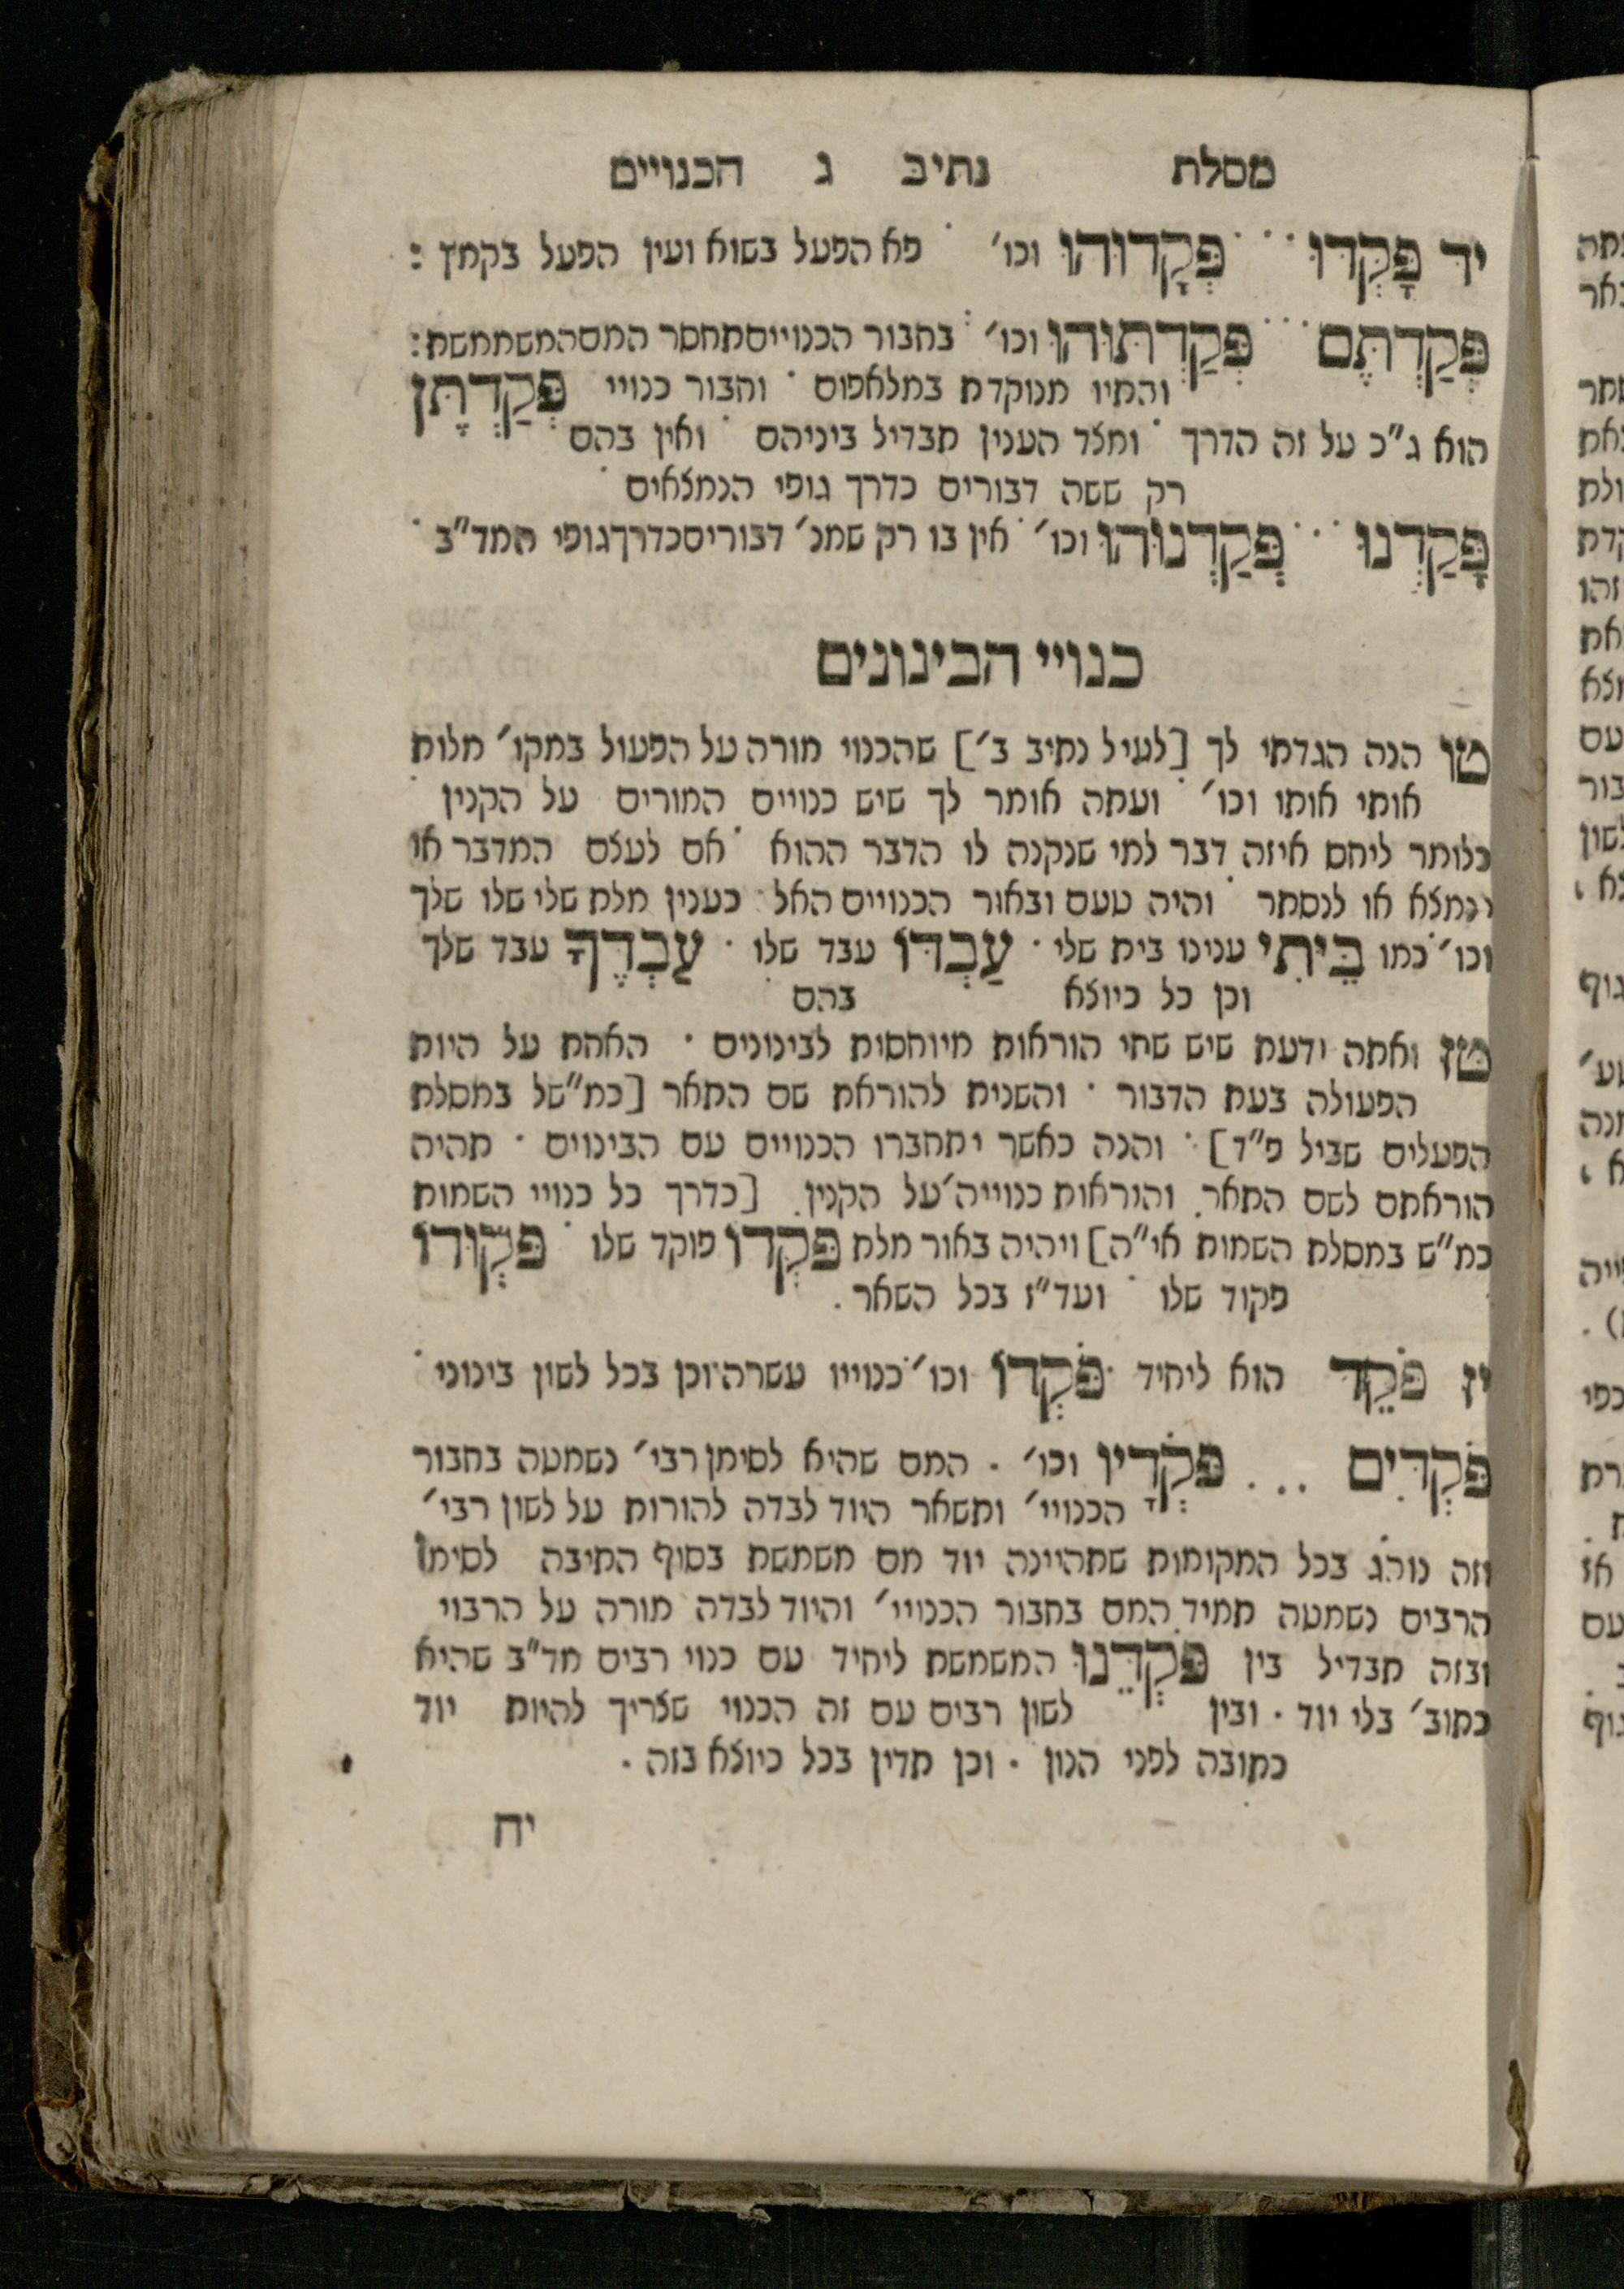 מסלת נתיב ג הכנויים
יד פָּקְדוּ · · · פְּקָדוּהוּ וכו׳ · פא הפעל בשוא ועין הפעל בקמץ :
פְּקַדְתֶּם · · · פְּקַדְתּוּהוּ וכו׳ · בחבור הכנויים תחסר המם המשתמשת :
והתיו מנוקדת במלאפום · וחבור כנויי פְּקַדְתֶּן
הוא ג״כ על זה הדרך · ומצד הענין מבדיל ביניהם · ואין בהם
רק ששה דבורים כדרך גופי הנמצאים ·
פָּקַדְנוּ · · · פְּקַדְנוּהוּ וכו׳ · אין בו רק שמנ׳ דבורים כדרך גופי המד״ב ·
כנויי הבינונים
טו הנה הגדתי לך [לעיל נתיב ב׳] שהכנוי מורה על הפעול במקו׳ מלות
אותי אותו וכו׳ · ועתה אומר לך שיש כנויים המורים על הקנין ·
כלומר ליחס איזה דבר למי שנקנה לו הדבר ההוא · אם לעצם המדבר או
נמצא או לנסתר · והיה טעם ובאור הכנויים האל · כענין מלת שלי שלו שלך
וכו׳ · כמו בֵּיתִי ענינו בית שלי · עַבְדּוֹ עבד שלו · עַבְדֶּךָ עבד שלך
וכן כל כיוצא בהם
טז ואתה ידעת שיש שתי הוראות מיוחסות לבינונים · האחת על היות
הפעולה בעת הדבור · והשנית להוראת שם התאר [כמ״של במסלת
הפעלים שביל פ״ד] · והנה כאשר יתחברו הכנויים עם הבינוים · תהיה
הוראתם לשם התאר . והוראות כנוייה׳ על הקנין . [כדרך כל כנויי השמות
כמ״ש במסלת השמות אי״ה] ויהיה באור מלת פֹּקְדוֹ פוקד שלו · פְּקוּדוֹ
פקוד שלו · ועד״ז בכל השאר .
יז פֹּקֵד הוא ליחיד · פֹּקְדוֹ וכו׳ · כנוייו עשרה וכן בכל לשון בינוני ·
פֹּקְדִים . . . פֹּקְדָיו וכו׳ . המם שהיא לסימן רבי׳ נשמטה בחבור
הכנויי׳ ותשאר היוד לבדה להורות על לשון רבי׳
וזה נוהג בכל המקומות שתהיינה יוד מם משמשת בסוף התיבה לסימן
הרבים נשמטה תמיד המם בחבור הכנויי׳ והיוד לבדה מורה על הרבוי
ובזה תבדיל בין פֹּקְדֵנוּ המשמשת ליחיד עם כנוי רבים מד״ב שהיא
כתוב׳ בלי יוד · ובין לשון רבים עם זה הכנוי שצריך להיות יוד
כתובה לפני הנון · וכן תדין בכל כיוצא בזה .
יח